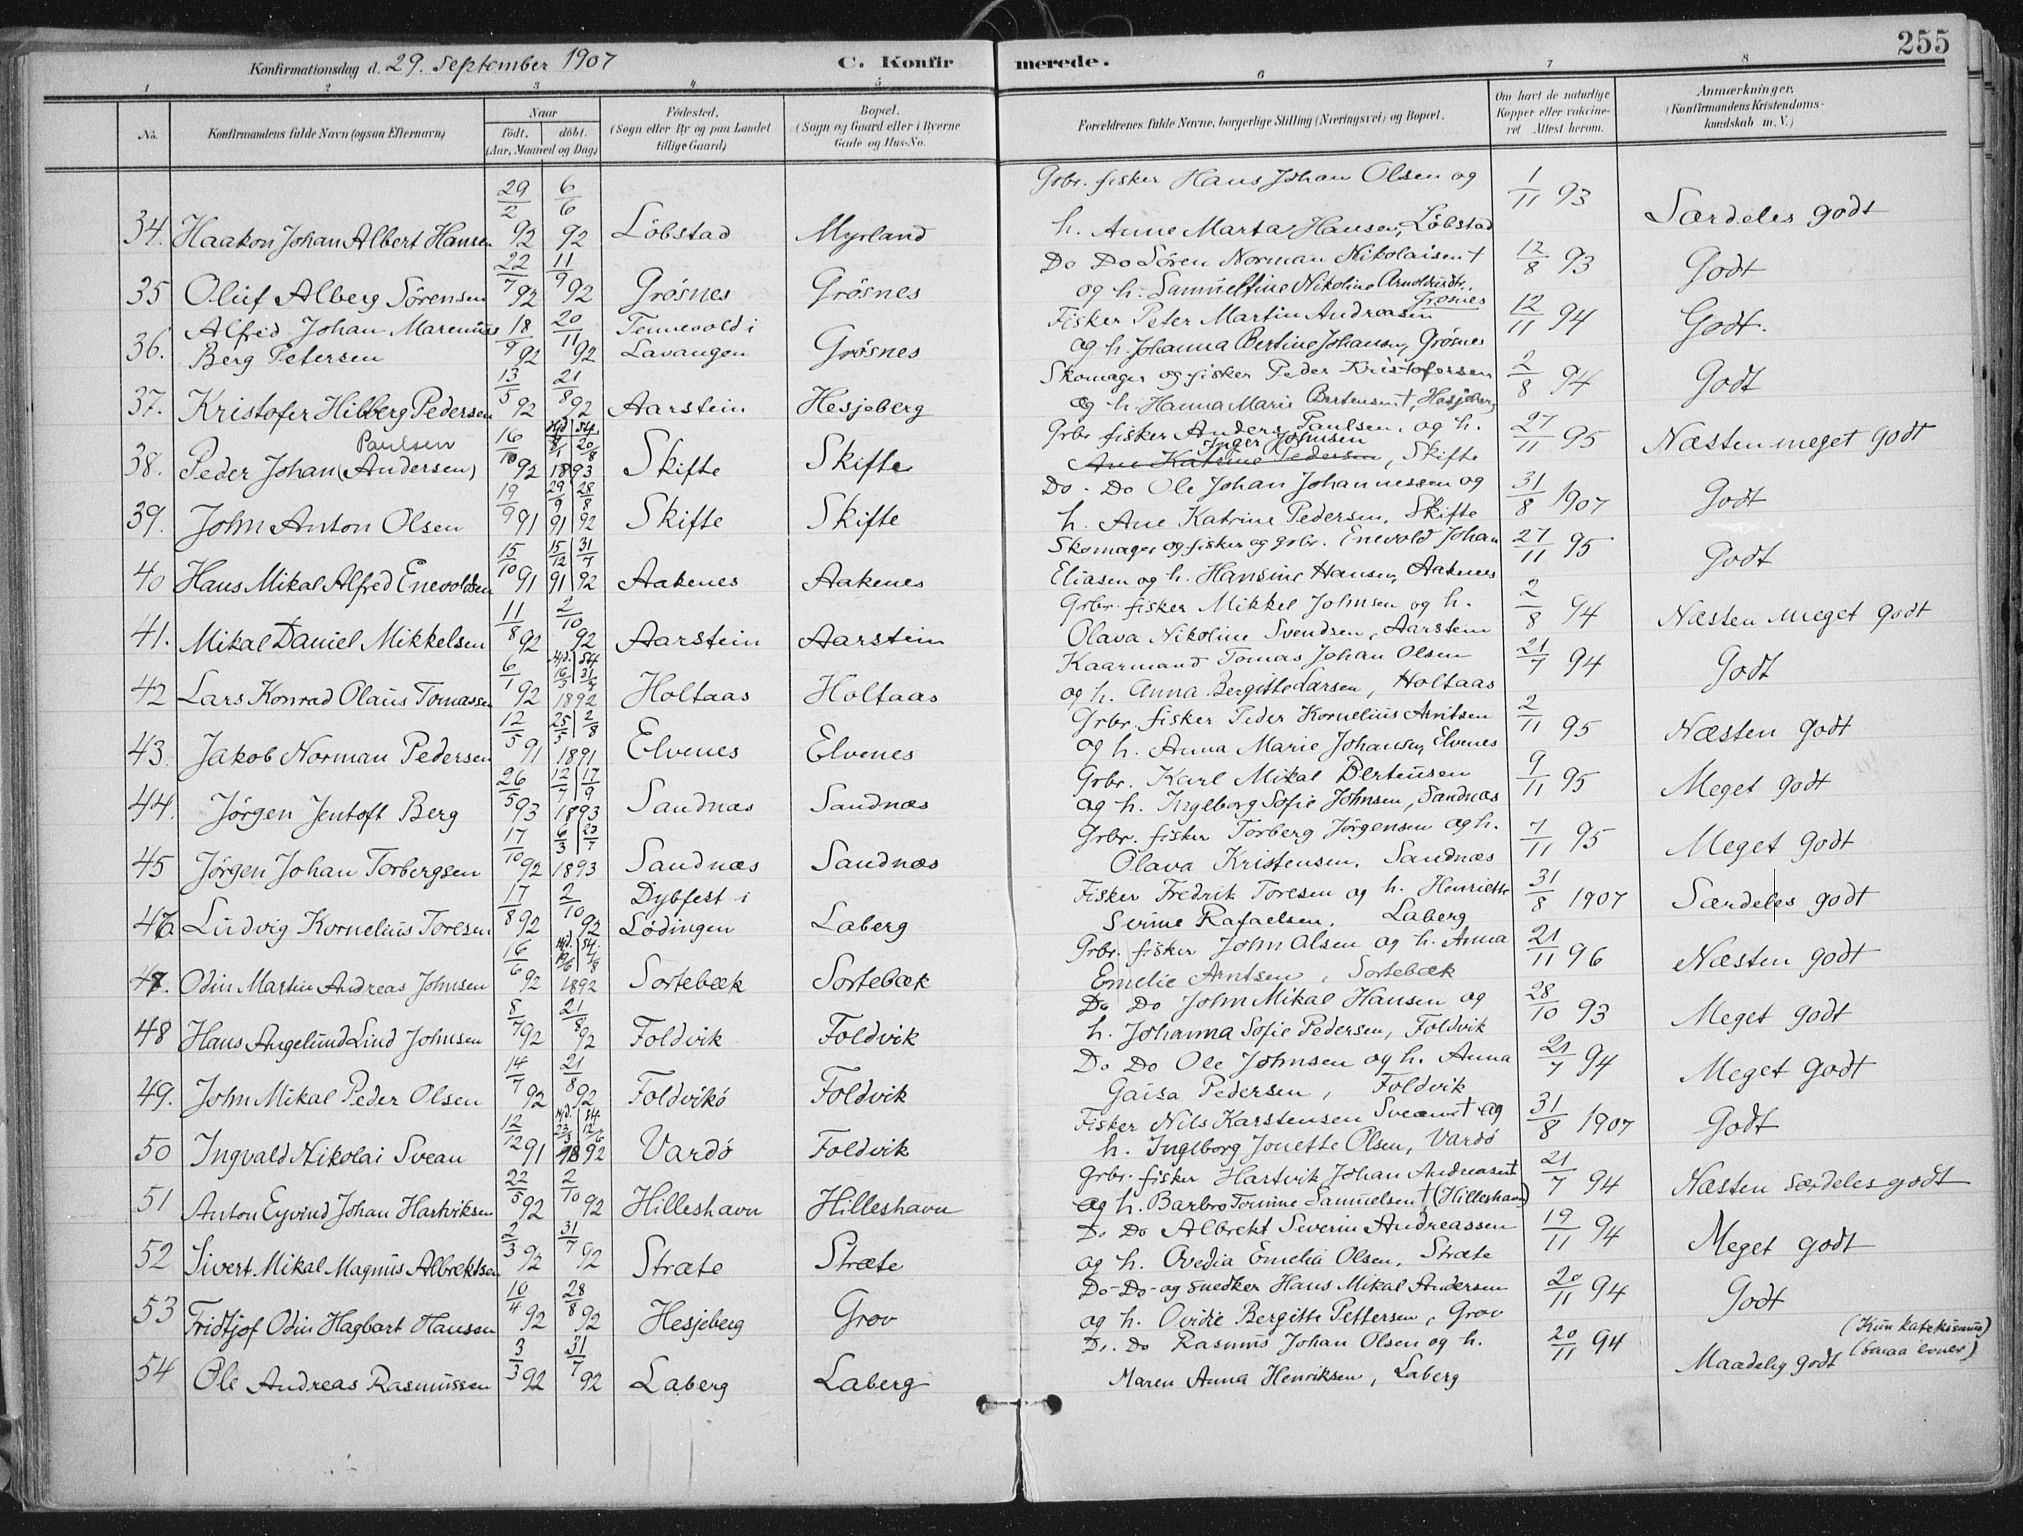 255
Konfirmationsdag d. 29. September 1907 C. Konfirmerede.
1 2 3 4 5 6 7 8
No. Konfirmandens fulde Navn (ogsaa Efternavn) Naar født. døbt. (Aar, Maaned og Dag) Fødested. (Sogn eller By og paa Landet tillige Gaard) Bopæl. (Sogn og Gaard eller i Byerne Gade og Hus-No. Forældrenes fulde Navne, borgerlige Stilling (Næringsvei) og Bopæl. Om havt de naturlige Kopper eller vakcineret. Attest herom. Anmærkninger. (Konfirmandens Kristendomskundskab m. V.)
34. Haakon Johan Albert Hansen 29/2 92 6/6 92 Löbstad Myrland Grbr. fisker Hans Johan Olsen og
h. Anne Marta Hansen, Löbstad 1/11 93 Særdeles godt
35 Oluf Alberg Sörensen 22/7 92 11/9 92 Grösnes Grösnes Do Do Sören Norman Nikolaisen †
og h. Samueline Nikoline Arnoldusdtr. Grösnes 12/8 93 Godt
36. Alfred Johan Marenius
Berg Petersen 18/9 92 20/11 92 Tennevold i
Lavangen Grösnes Fisker Peter Martin Andreasen
og h. Johanna Bertine Johansen, Grösnes 12/11 94 Godt.
37. Kristofer Hilberg Pedersen 13/5 92 21/8 92 Aarstein Hesjeberg Skomager og fisker Peder Kristofersen
og h. Hanna Marie Bertensen †, Hesjeberg 2/8 94 Godt
38. Peder Johan (Andersen) Paulsen 16/10 92 Hjd. 8/1 St. 20/8 1893 Skifte Skifte Grbr. fisker Anders Paulsen, og h.
Inger Johnsen
Ane Katrine Pedersen, Skifte 27/11 95 Næsten meget godt
39. John Anton Olsen 19/9 91 29/9 91 28/8 92 Skifte Skifte Do. Do Ole Johan Johannessen og
h. Ane Katrine Pedersen, Skifte 31/8 1907 Godt
40 Hans Mikal Alfred Enevoldsen 15/10 91 15/12 91 31/7 92 Aakenes Aakenes Skomager og fisker og grbr. Enevold Johan
Eliasen og h. Hansine Hansen, Aakenes 27/11 95 Godt
41. Mikal Daniel Mikkelsen 11/8 92 2/10 92 Aarstein Aarstein Grbr. fisker Mikkel Johnsen og h.
Olava Nikoline Svendsen, Aarstein 2/8 94 Næsten meget godt
42 Lars Konrad Olaus Tomassen 6/1 92 Hjd. 16/3 St. 31/7 1892 Holtaas Holtaas Kaarmand Tomas Johan Olsen
og h. Anna Bergitte Larsen, Holtaas 21/7 94 Godt
43. Jakob Norman Pedersen 12/5 91 25/5 2/8 1891 Elvenes Elvenes Grbr. fisker Peder Kornelius Arntsen
og h. Anna Marie Johansen, Elvenes 2/11 95 Næsten godt
44. Jørgen Jentoft Berg 26/5 93 12/7 17/9 1893 Sandnæs Sandnæs Grbr. Karl Mikal Berteusen
og h. Ingeborg Sofie Johnsen, Sandnæs 9/11 95 Meget godt
45 Jørgen Johan Torbergsen 17/10 92 6/3 23/7 1893 Sandnæs Sandnæs Grbr. fisker Torberg Jørgensen og h.
Olava Kristensen, Sandnæs 7/11 95 Meget godt
46 Ludvig Kornelius Toresen 17/8 92 2/10 92 Dybfest i
Lødingen Laberg Fisker Fredrik Toresen og h. Henriette
Sevrine Rafaelsen, Laberg 31/8 1907 Særdeles godt
47. Odin Martin Andreas Johnsen 16/6 92 Hjd. 19/6 St. 1892 Sortebæk Sortebæk Grbr. fisker John Olsen og h. Anna
Emelie Arntsen, Sortebæk 21/11 96 Næsten godt
48 Hans Angelund Lind Johnsen 8/7 92 21/8 92 Foldvik Foldvik Do Do John Mikal Hansen og
h. Johanna Sofie Pedersen, Foldvik 28/10 93 Meget godt
49. John Mikal Peder Olsen 14/7 92 21/8 92 Foldvik Foldvik Do Do Ole Johnsen og h. Anna
Gaisa Pedersen, Foldvik 21/7 94 Meget godt
50 Ingvald Nikolai Svean 12/12 91 Hjd. 23/3 St. 12/6 1892 Vardö Foldvik Fisker Nils Karstensen Svean † og
h. Ingeborg Jonette Olsen, Vardö 31/8 1907 Godt
51 Anton Eyvind Johan Hartviksen 22/5 92 2/10 92 Hilleshavn Hilleshavn Grbr. fisker Hartvik Johan Andreasen †
og h. Barbro Tomine Samuelsen † (Hilleshavn) 21/7 94 Næsten særdeles godt
52 Sivert Mikal Magnus Albrektsen 2/3 92 31/7 92 Stræte Stræte Do Do Albrekt Severin Andreassen
og h. Ovedia Emelia Olsen, Stræte 19/11 94 Meget godt
53 Fridtjof Odin Hagbart Hansen 10/4 92 28/8 92 Hesjeberg Grov Do Do og snedker Hans Mikal Andersen
og h. Ovidie Bergitte Pettersen, Grov 20/11 94 Godt
54 Ole Andreas Rasmussen 3/3 92 31/7 92 Laberg Laberg Do. Do Rasmus Johan Olsen og h.
Maren Anna Henriksen, Laberg 20/11 94 Maadelig godt (Kun katekismus)
(smaa evner)